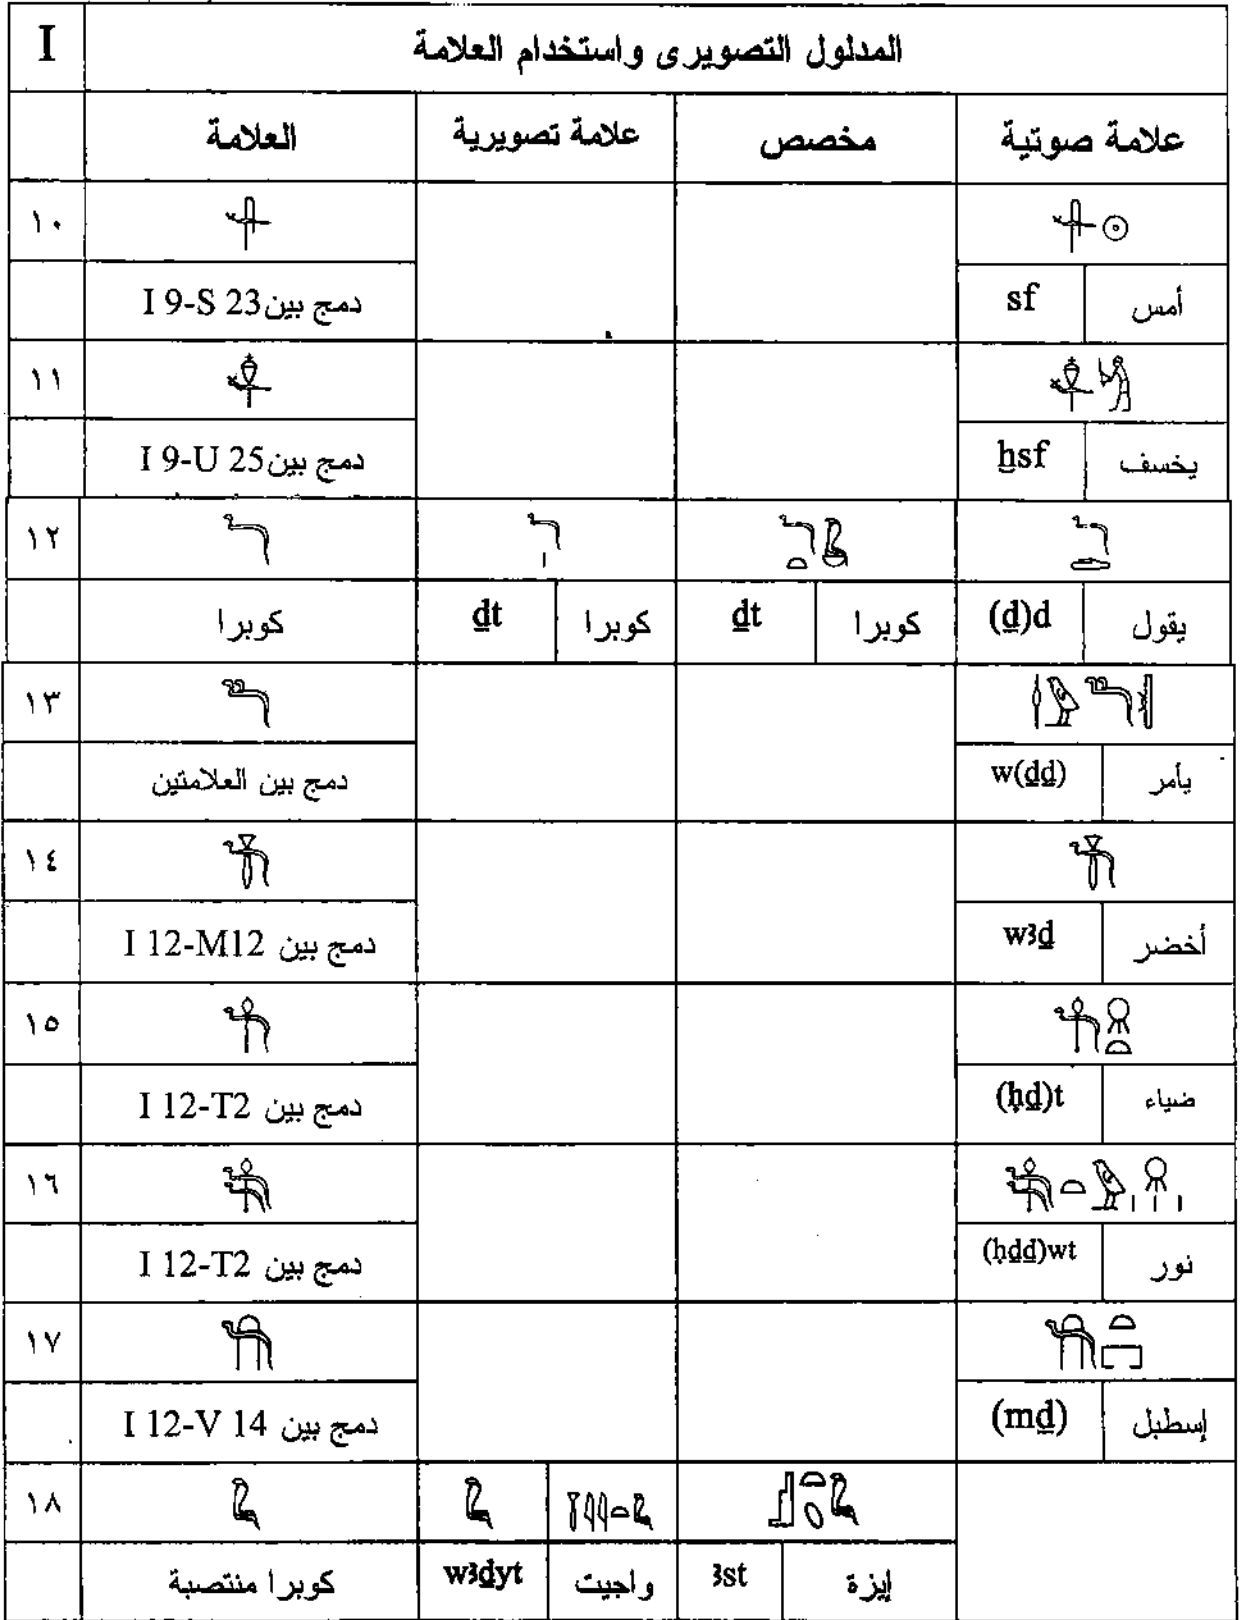 I المدلول التصويرى واستخدام العلامة
العلامة علامة تصويرية مخصص علامة صوتية
١٠
دمج بين I 9-S 23 sf أمس
١١
دمج بين I 9-U 25 ẖsf يخسف
١٢
كوبرا ḏt كوبرا ḏt كوبرا (ḏ)d يقول
١٣
دمج بين العلامتين w(ḏḏ) يأمر
١٤
دمج بين I 12-M12 wꜣḏ أخضر
١٥
دمج بين I 12-T2 (ḥḏ)t ضياء
١٦
دمج بين I 12-T2 (ḥḏḏ)wt نور
١٧
دمج بين I 12-V 14 (mḏ) إسطبل
١٨
كوبرا منتصبة wꜣḏyt واجيت ꜣst إيزة